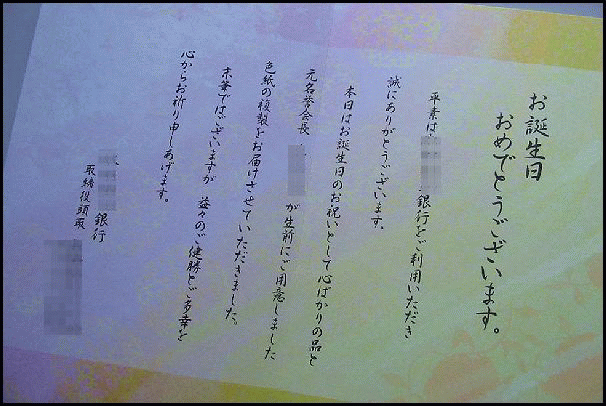 お誕生日
おめでとうございます。
平素は
銀行をご利用いただき
誠にありがとうございます。
本日はお誕生日のお祝いとして心ばかりの品と
元名誉会長
が生前にご用意しました
色紙の複製をお届けさせていただきました。
末筆ではございますが 益々のご健勝とご多幸を
心からお祈り申しあげます。
銀行
取締役頭取